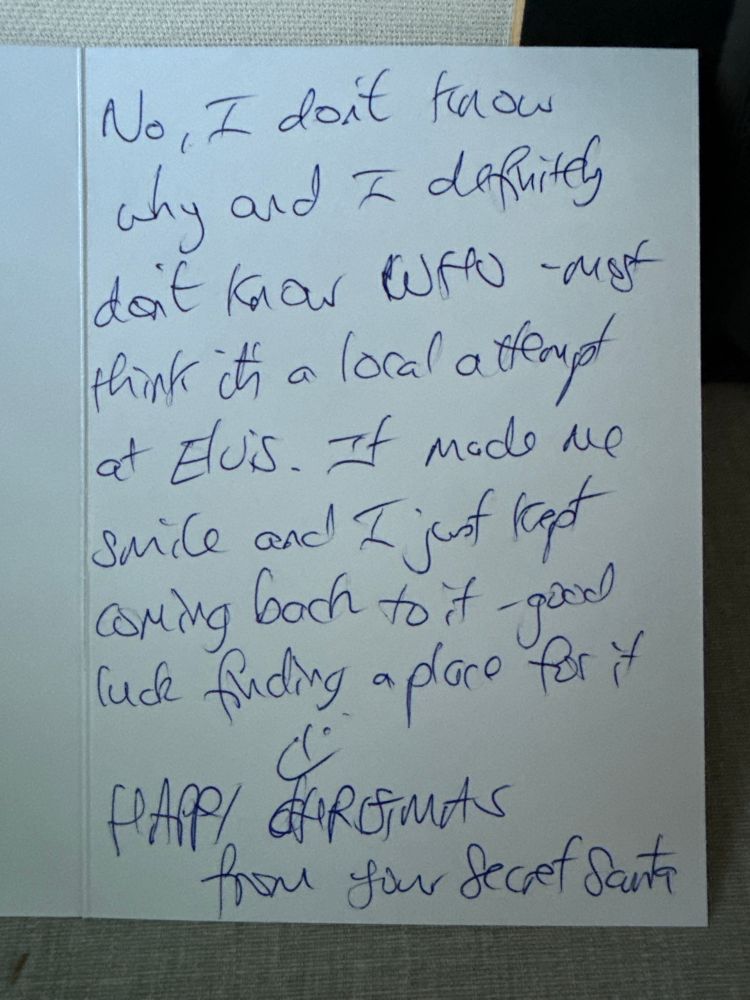 No, I don't know
why and I definitely
don't know WHO - most
think it's a local attempt
at Elvis. It made me
smile and I just kept
coming back to it - good
luck finding a place for it
HAPPY CHRISTMAS
from your Secret Santa